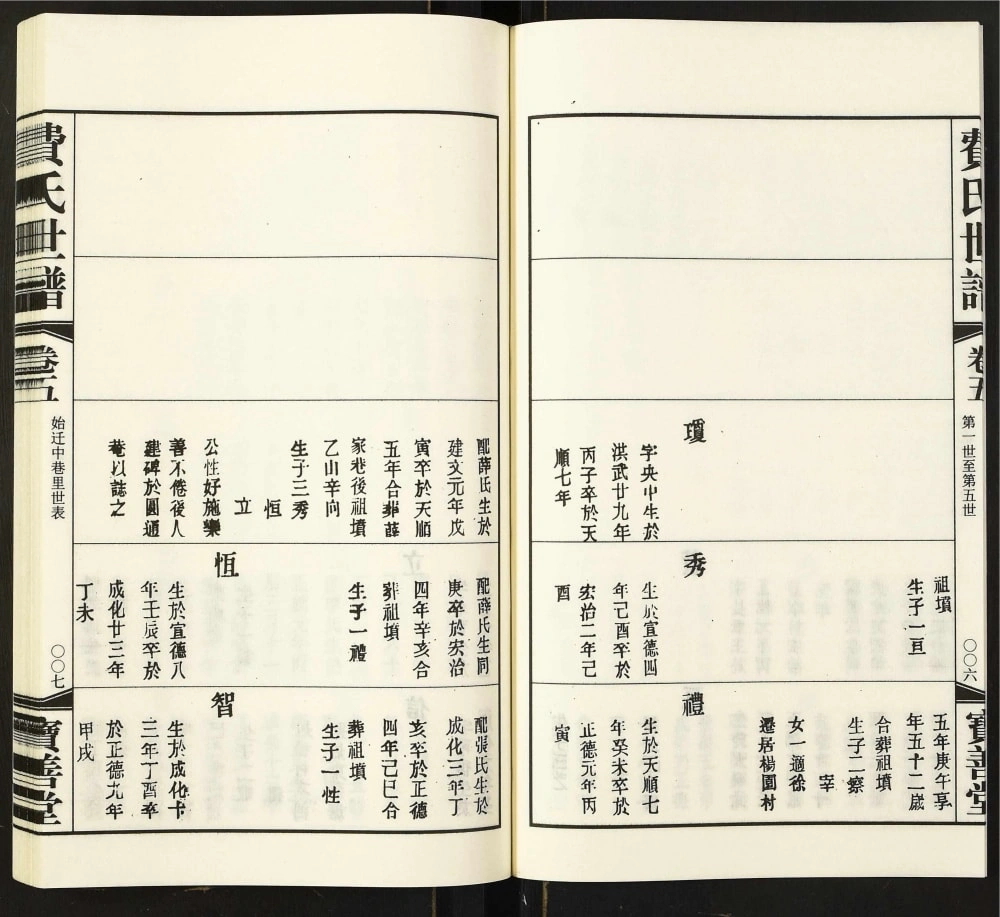 費氏世譜
卷五
第一世至第五世
〇〇六
寶善堂
瓊
字央中生於
洪武廿九年
丙子卒於天
順七年
祖墳
生子一亘
秀
生於宣德四
年己酉卒於
宏治二年己
酉
五年庚午享
年五十二歲
合葬祖墳
生子二察
宰
女一適徐
遷居楊園村
禮
生於天順七
年癸未卒於
正德元年丙
寅
配薛氏生於
建文元年戊
寅卒於天順
五年合葬薛
家巷後祖墳
乙山辛向
生子三秀
恒
立
公性好施樂
善不倦後人
建碑於圓通
菴以誌之
配薛氏生同
庚卒於宏治
四年辛亥合
葬祖墳
生子一禮
恆
生於宣德八
年壬辰卒於
成化廿三年
丁未
配張氏生於
成化三年丁
亥卒於正德
四年己巳合
葬祖墳
生子一性
智
生於成化十
三年丁酉卒
於正德九年
甲戌
費氏世譜
卷五
始迁中巷里世表
〇〇七
寶善堂